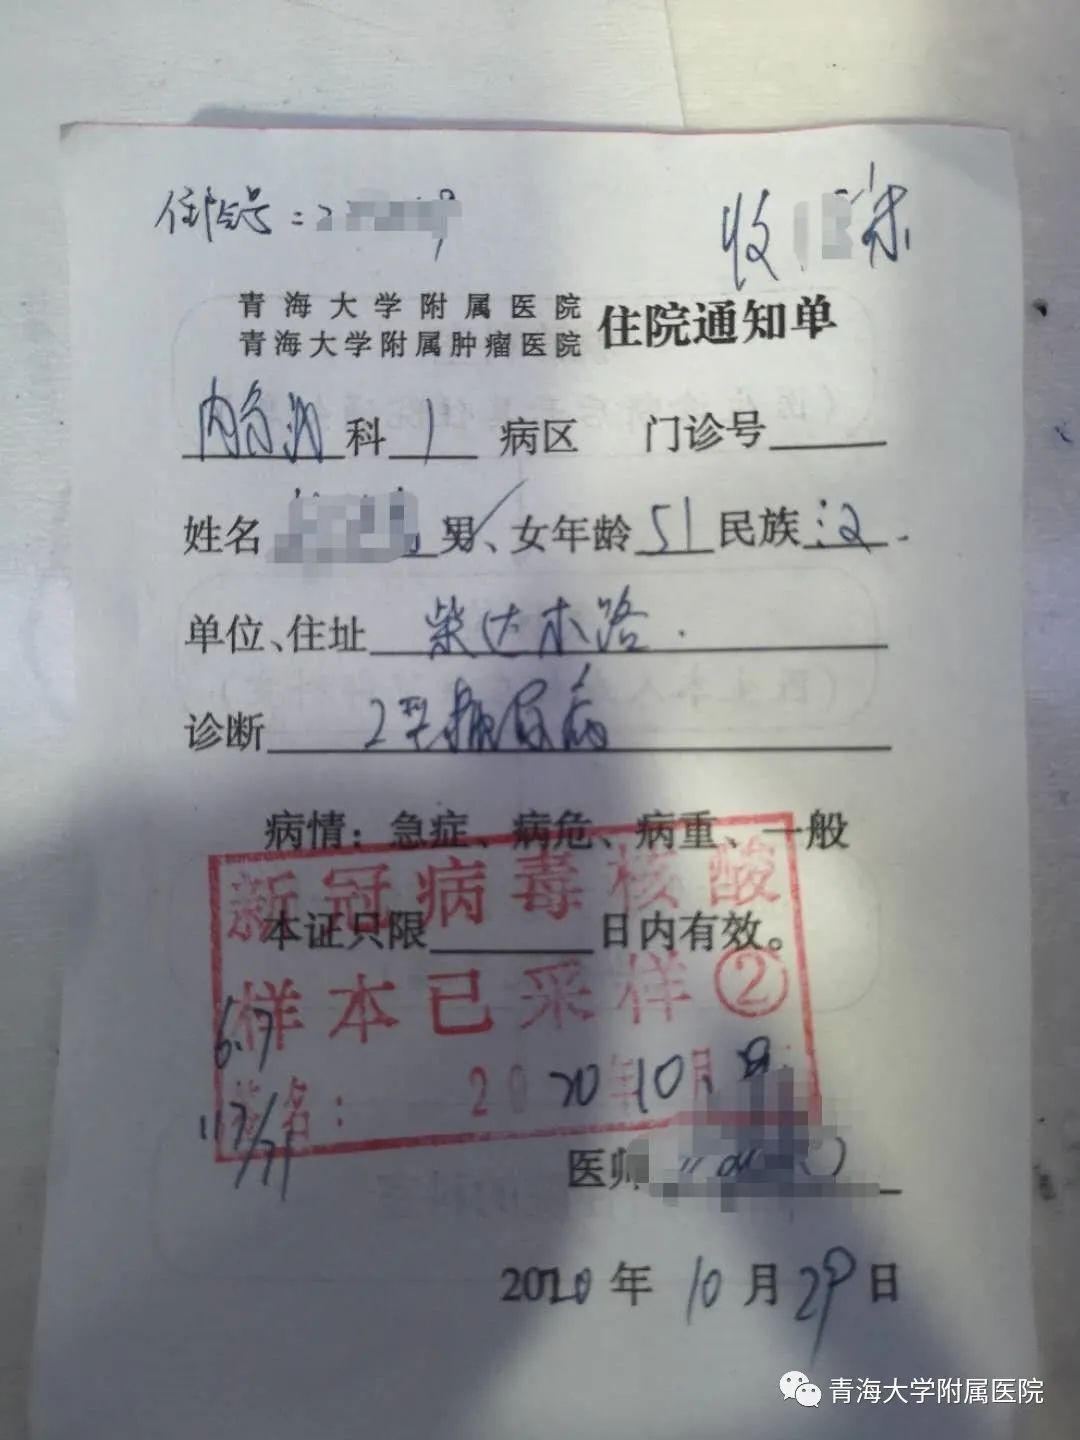 住院号：2
收 床
青海大学附属医院
青海大学附属肿瘤医院 住院通知单
内分泌科 1 病区 门诊号
姓名 男、女年龄 51 民族 汉.
单位、住址 柴达木路.
诊断 2型糖尿病
病情：急症、病危、病重、一般
新冠病毒核酸
本证只限 日内有效。
样本已采样②
6.7
签名： 2020年10月
117/71
医师
2020年10月29日
青海大学附属医院